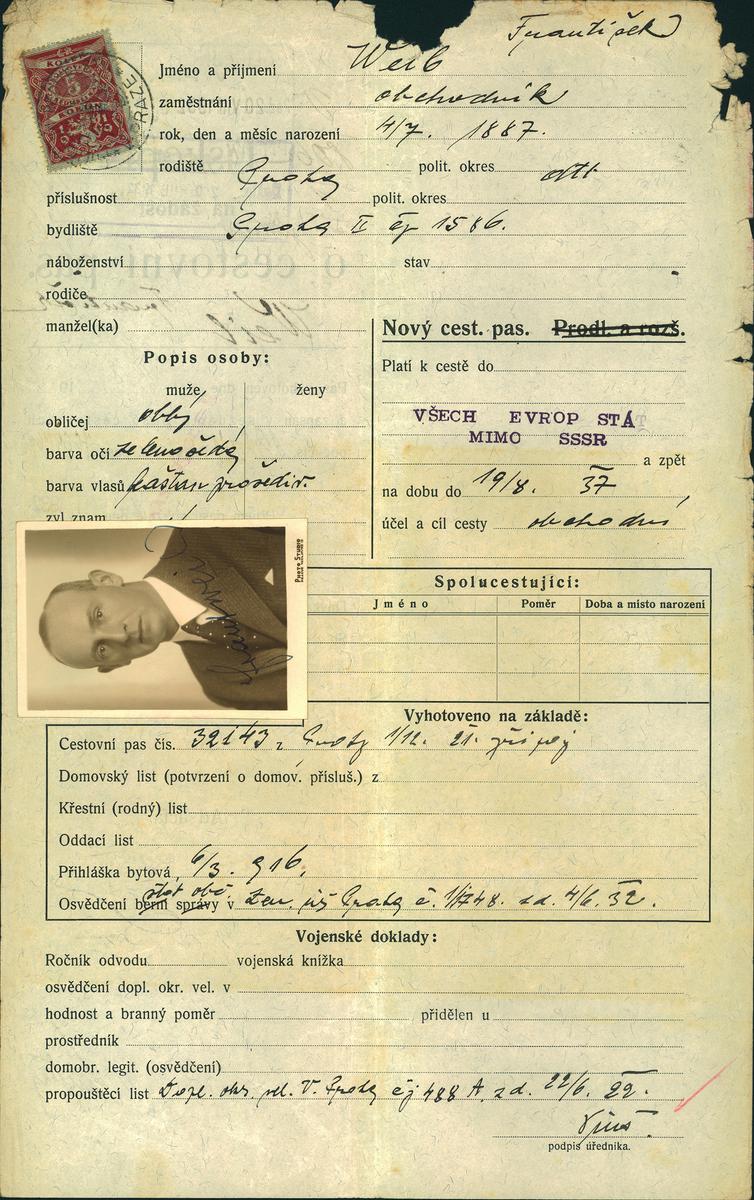 František
Jméno a příjmení Weil
zaměstnání obchodník
rok, den a měsíc narození 4/7. 1887.
rodiště Praha polit. okres dtt
příslušnost polit. okres
bydliště Praha II čp 1586.
náboženství stav
rodiče
manžel(ka)
Popis osoby:
muže ženy
obličej oblý
barva očí zelenošedé
barva vlasů kaštan prošediv.
zvl znam
Nový cest. pas. Prodl. a rozš.
Platí k cestě do
VŠECH EVROP STÁT
MIMO SSSR
a zpět
na dobu do 19/8. 37
účel a cíl cesty obchodní
PHOTO STUDIO
Frant Weil
Spolucestující:
Jméno Poměr Doba a místo narození
Vyhotoveno na základě:
Cestovní pas čís. 32143 z Prahy 1/12. 21.
Domovský list (potvrzení o domov. přísluš.) z
Křestní (rodný) list
Oddací list
Přihláška bytová 6/3. 916.
stát obč.
Osvědčení berní správy v Zem. úř Praha č. zd. 4/6. 32.
Vojenské doklady:
Ročník odvodu vojenská knížka
osvědčení dopl. okr. vel. v
hodnost a branný poměr přidělen u
prostředník
domobr. legit. (osvědčení)
propouštěcí list Dopl. okr. vel. V. Praha čj 488 A. zd. 22/6. 22.
podpis úředníka.